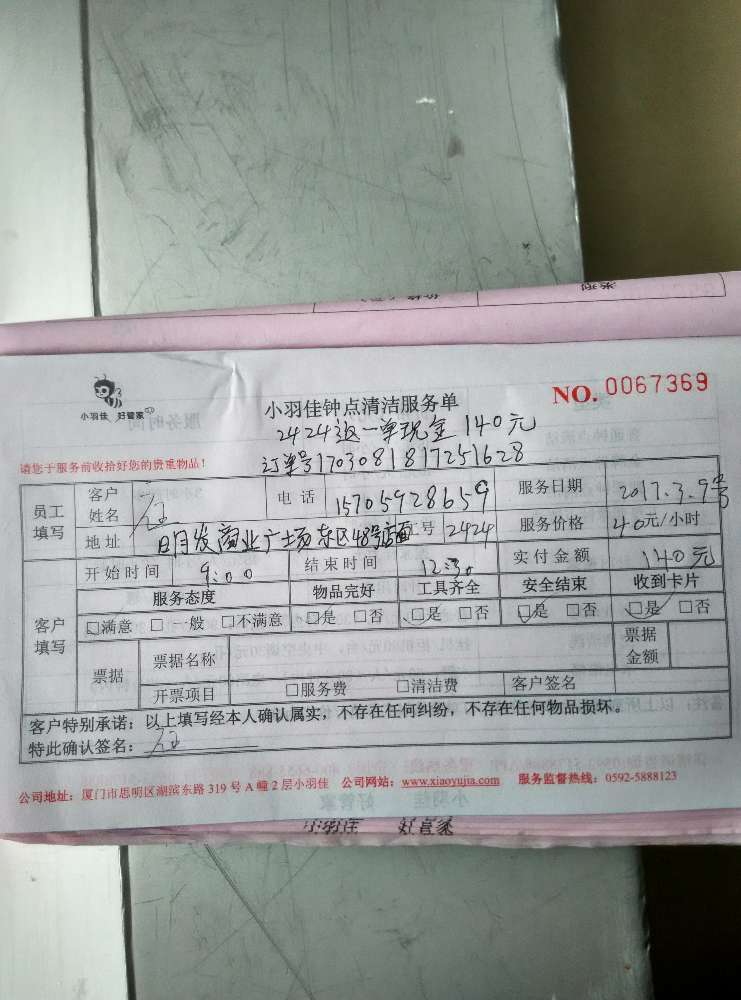 小羽佳 好管家
小羽佳钟点清洁服务单
NO. 0067369
2424返一单现金140元
请您于服务前收拾好您的贵重物品!
订单号1703081817251628
员工填写 客户姓名 汪 电话 15705928659 服务日期 2017.3.9号
地址 日月发商业广场东区48号店面 工号 2424 服务价格 40元/小时
客户填写 开始时间 9:00 结束时间 12:30 实付金额 140元
服务态度 物品完好 工具齐全 安全结束 收到卡片
□满意 □一般 □不满意 □是 □否 □是 □否 □是 □否 □是 □否
票据 票据名称 票据金额
开票项目 □服务费 □清洁费 客户签名
客户特别承诺:以上填写经本人确认属实,不存在任何纠纷,不存在任何物品损坏。
特此确认签名: 汪
公司地址:厦门市思明区湖滨东路319号A幢2层小羽佳 公司网站:www.xiaoyujia.com 服务监督热线:0592-5888123
小羽佳 好管家